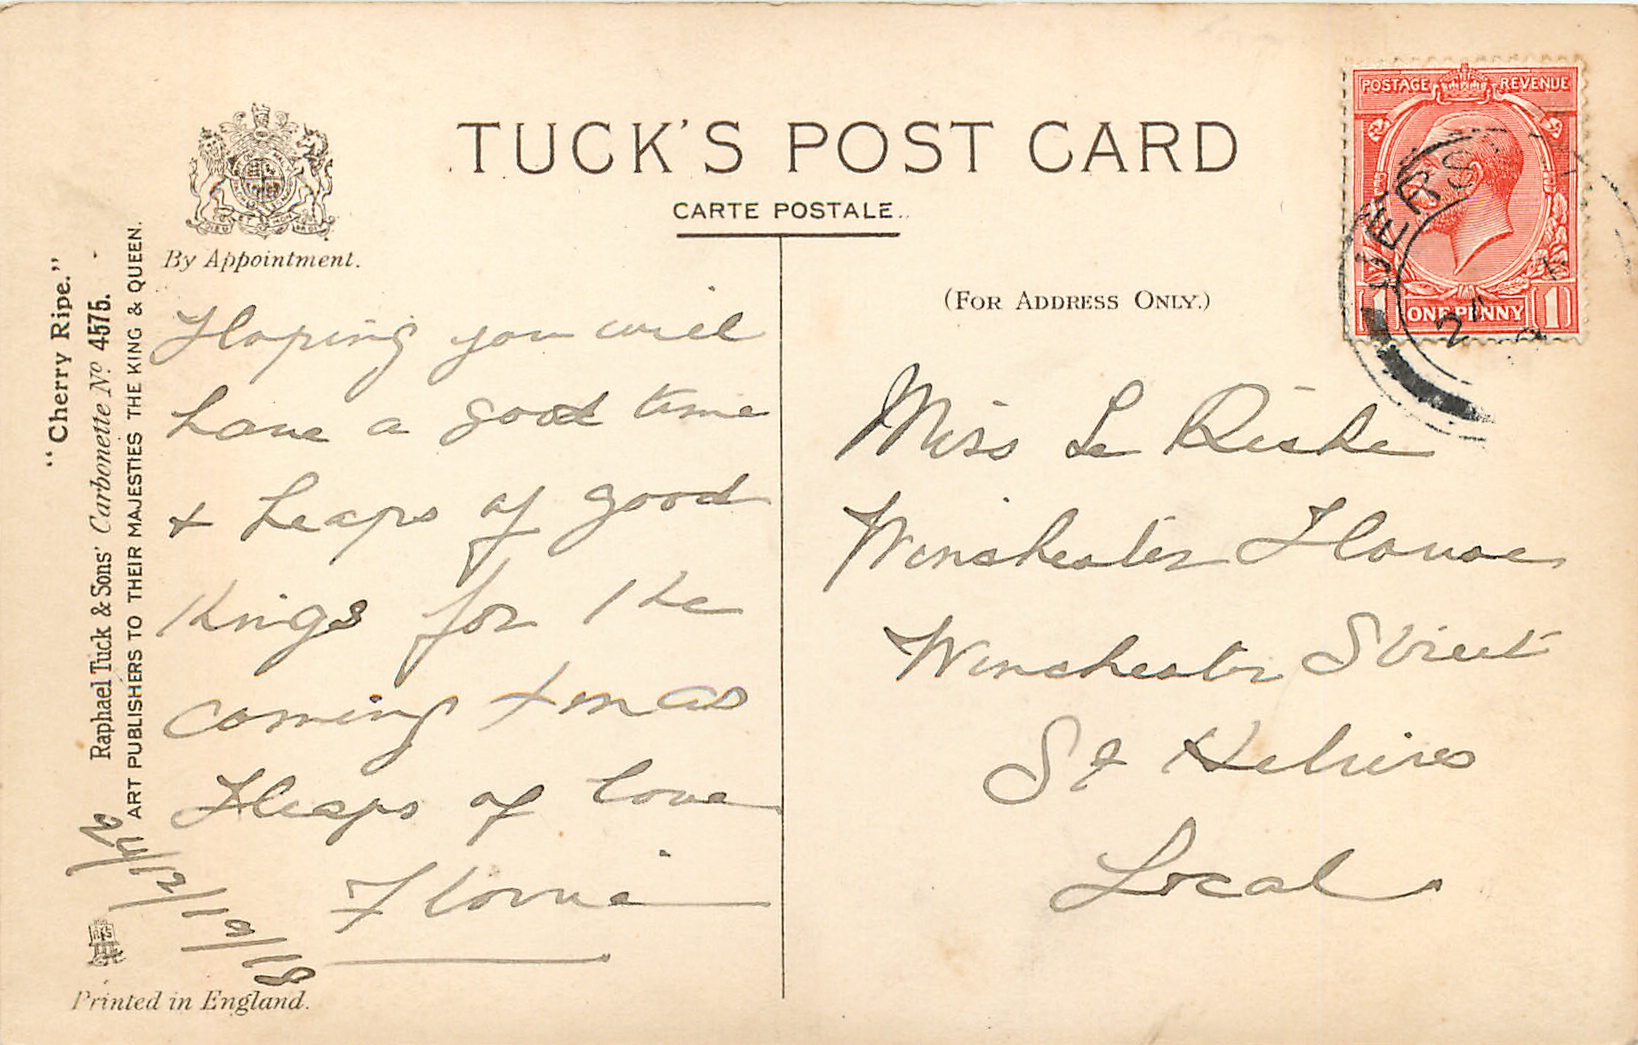 TUCK'S POST CARD
CARTE POSTALE.
By Appointment.
(FOR ADDRESS ONLY.)
"Cherry Ripe."
Raphael Tuck & Sons' Carbonette No 4575.
ART PUBLISHERS TO THEIR MAJESTIES THE KING & QUEEN.
Printed in England.
POSTAGE REVENUE
1 ONE PENNY 1
JERSEY
Hoping you will
have a good time
& heaps of good
things for the
coming Xmas
Heaps of love
Florrie
Miss Le
Winchester House
Winchester Street
St Heliers
Local